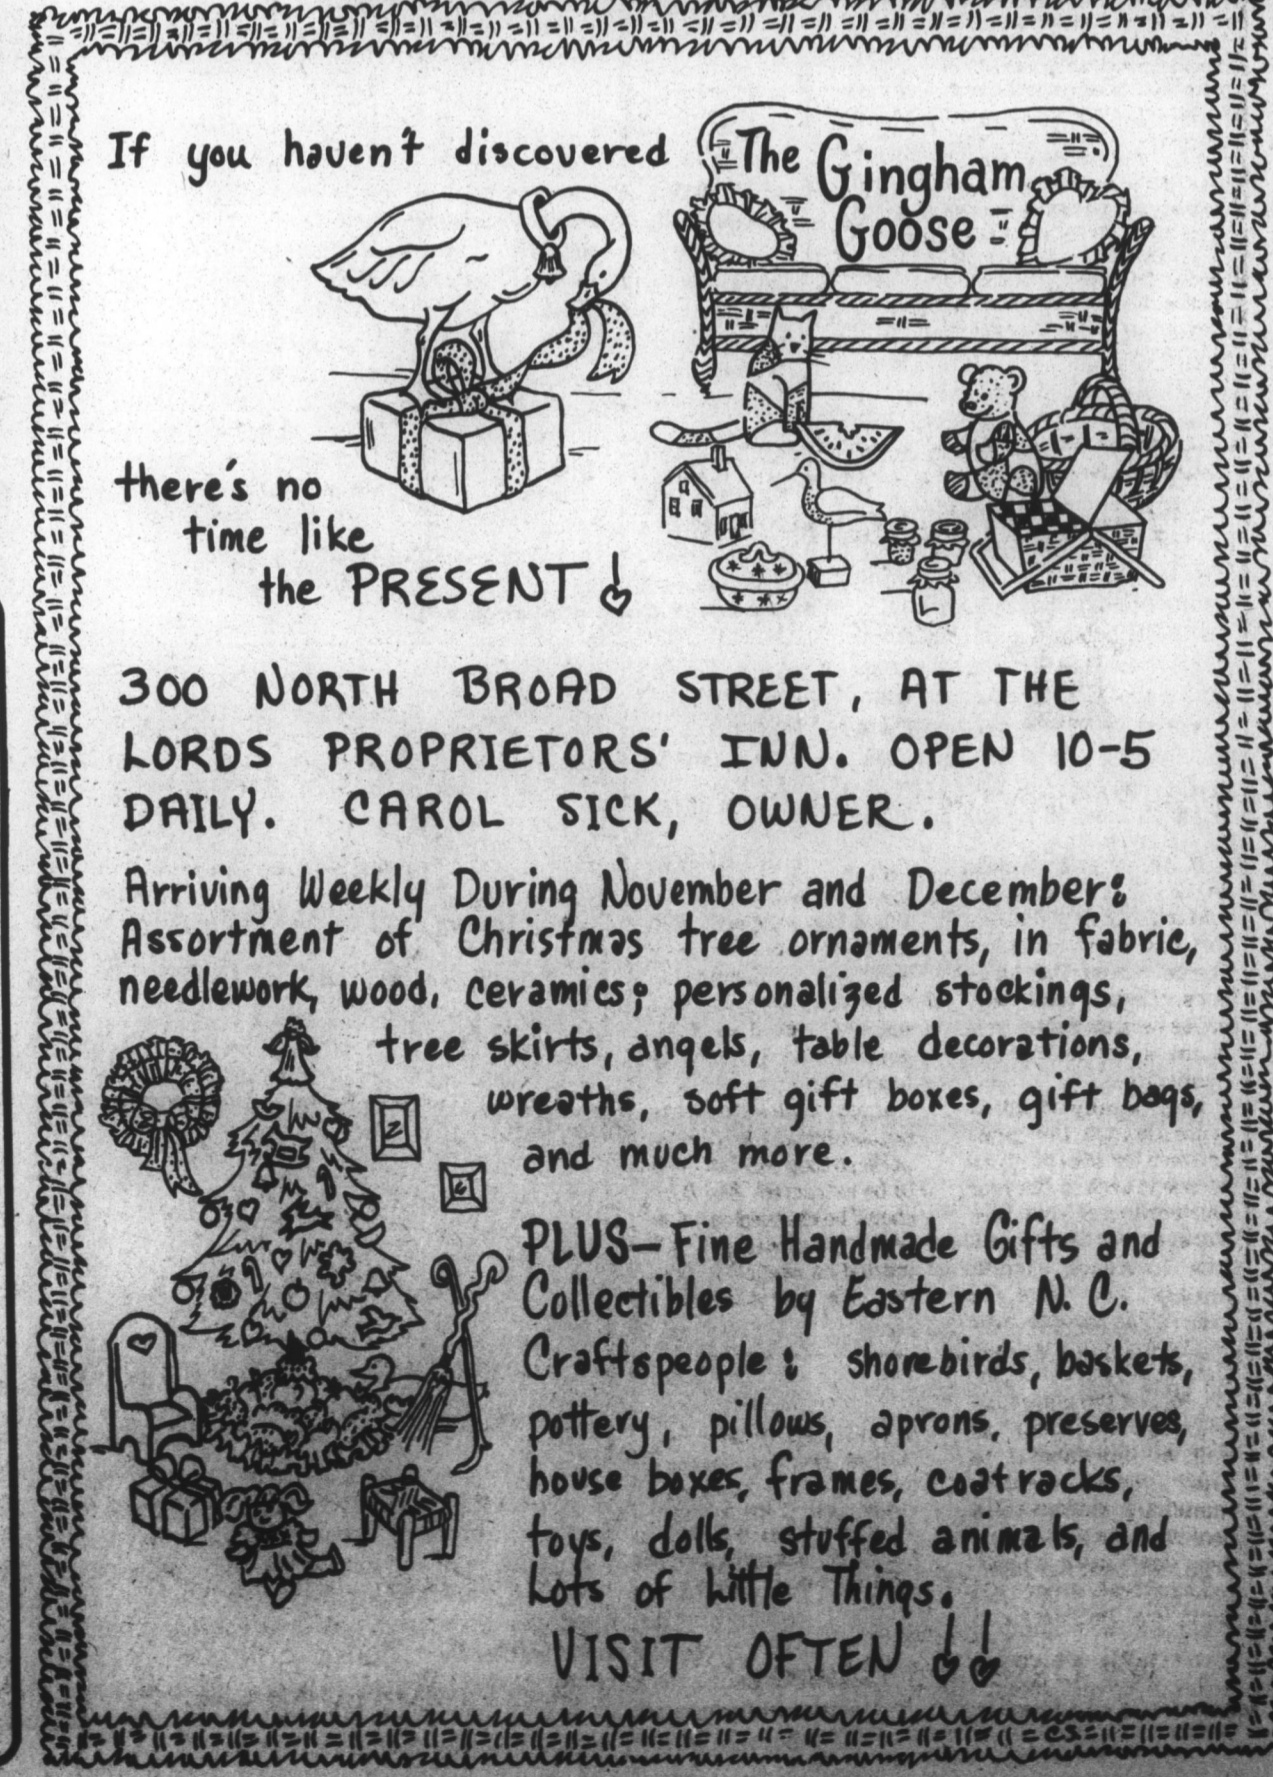 If you haven't discovered The Gingham
Goose
there's no
time like
the PRESENT!
300 NORTH BROAD STREET, AT THE
LORDS PROPRIETORS' INN. OPEN 10-5
DAILY. CAROL SICK, OWNER.
Arriving Weekly During November and December:
Assortment of Christmas tree ornaments, in fabric,
needlework, wood, ceramics; personalized stockings,
tree skirts, angels, table decorations,
wreaths, soft gift boxes, gift bags,
and much more.
PLUS—Fine Handmade Gifts and
Collectibles by Eastern N.C.
Craftspeople: shorebirds, baskets,
pottery, pillows, aprons, preserves,
house boxes, frames, coat racks,
toys, dolls, stuffed animals, and
Lots of Little Things.
VISIT OFTEN!!
C.S.